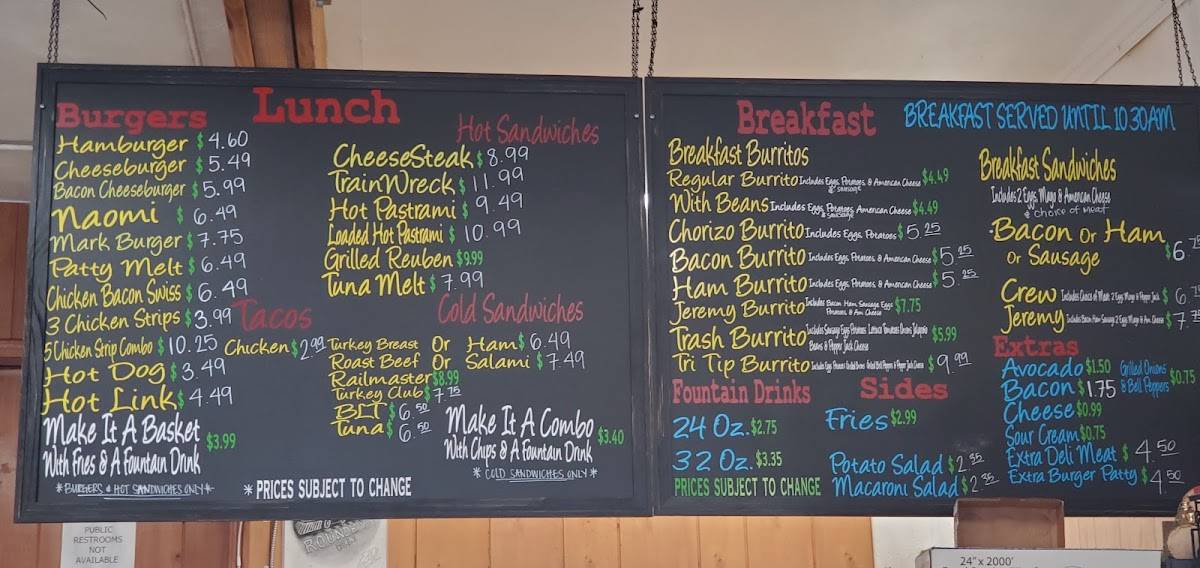 Lunch
Burgers
Hamburger $4.60
Cheeseburger $5.49
Bacon Cheeseburger $5.99
Naomi $6.49
Mark Burger $7.75
Patty Melt $6.49
Chicken Bacon Swiss $6.49
3 Chicken Strips $3.99
5 Chicken Strip Combo $10.25
Hot Dog $3.49
Hot Link $4.49
Make It A Basket $3.99
With Fries & A Fountain Drink
*BURGERS & HOT SANDWICHES ONLY*
Tacos
Chicken $2.99
Hot Sandwiches
CheeseSteak $8.99
TrainWreck $11.99
Hot Pastrami $9.49
Loaded Hot Pastrami $10.99
Grilled Reuben $9.99
Tuna Melt $7.99
Cold Sandwiches
Turkey Breast Or Ham $6.49
Roast Beef Or Salami $7.49
Railmaster $8.99
Turkey Club $7.75
BLT $6.50
Tuna $6.50
Make It A Combo $3.40
With Chips & A Fountain Drink
*COLD SANDWICHES ONLY*
*PRICES SUBJECT TO CHANGE
Breakfast
BREAKFAST SERVED UNTIL 10 30AM
Breakfast Burritos
Regular Burrito Includes Eggs, Potatoes, & American Cheese $4.49
& Sausage
With Beans Includes Eggs, Potatoes, American Cheese $4.49
& Sausage
Chorizo Burrito Includes Eggs, Potatoes $5.25
Bacon Burrito Includes Eggs, Potatoes, & American Cheese $5.25
Ham Burrito Includes Eggs, Potatoes, & American Cheese $5.25
Jeremy Burrito Includes Bacon Ham Sausage Eggs $7.75
Potatoes & Am Cheese
Trash Burrito Includes Sausage Eggs Potatoes Lettuce Tomatoes Onions Jalapeño $5.99
Beans & Pepper Jack Cheese
Tri Tip Burrito Includes Eggs Potatoes Grilled Onions Grilled Bell Peppers & Pepper Jack Cheese $9.99
Breakfast Sandwiches
Includes 2 Eggs Mayo & American Cheese
& choice of meat
Bacon Or Ham
Or Sausage $6.75
Crew Includes Choice of Meat 2 Eggs Mayo & Pepper Jack $6.75
Jeremy Includes Bacon Ham Sausage 2 Eggs Mayo & Am Cheese $7.75
Fountain Drinks
24 Oz. $2.75
32 Oz. $3.35
PRICES SUBJECT TO CHANGE
Sides
Fries $2.99
Potato Salad $2.35
Macaroni Salad $2.35
Extras
Avocado $1.50
Bacon $1.75
Grilled Onions
& Bell Peppers $0.75
Cheese $0.99
Sour Cream $0.75
Extra Deli Meat $4.50
Extra Burger Patty $4.50
PUBLIC
RESTROOMS
NOT
AVAILABLE
24" x 2000'